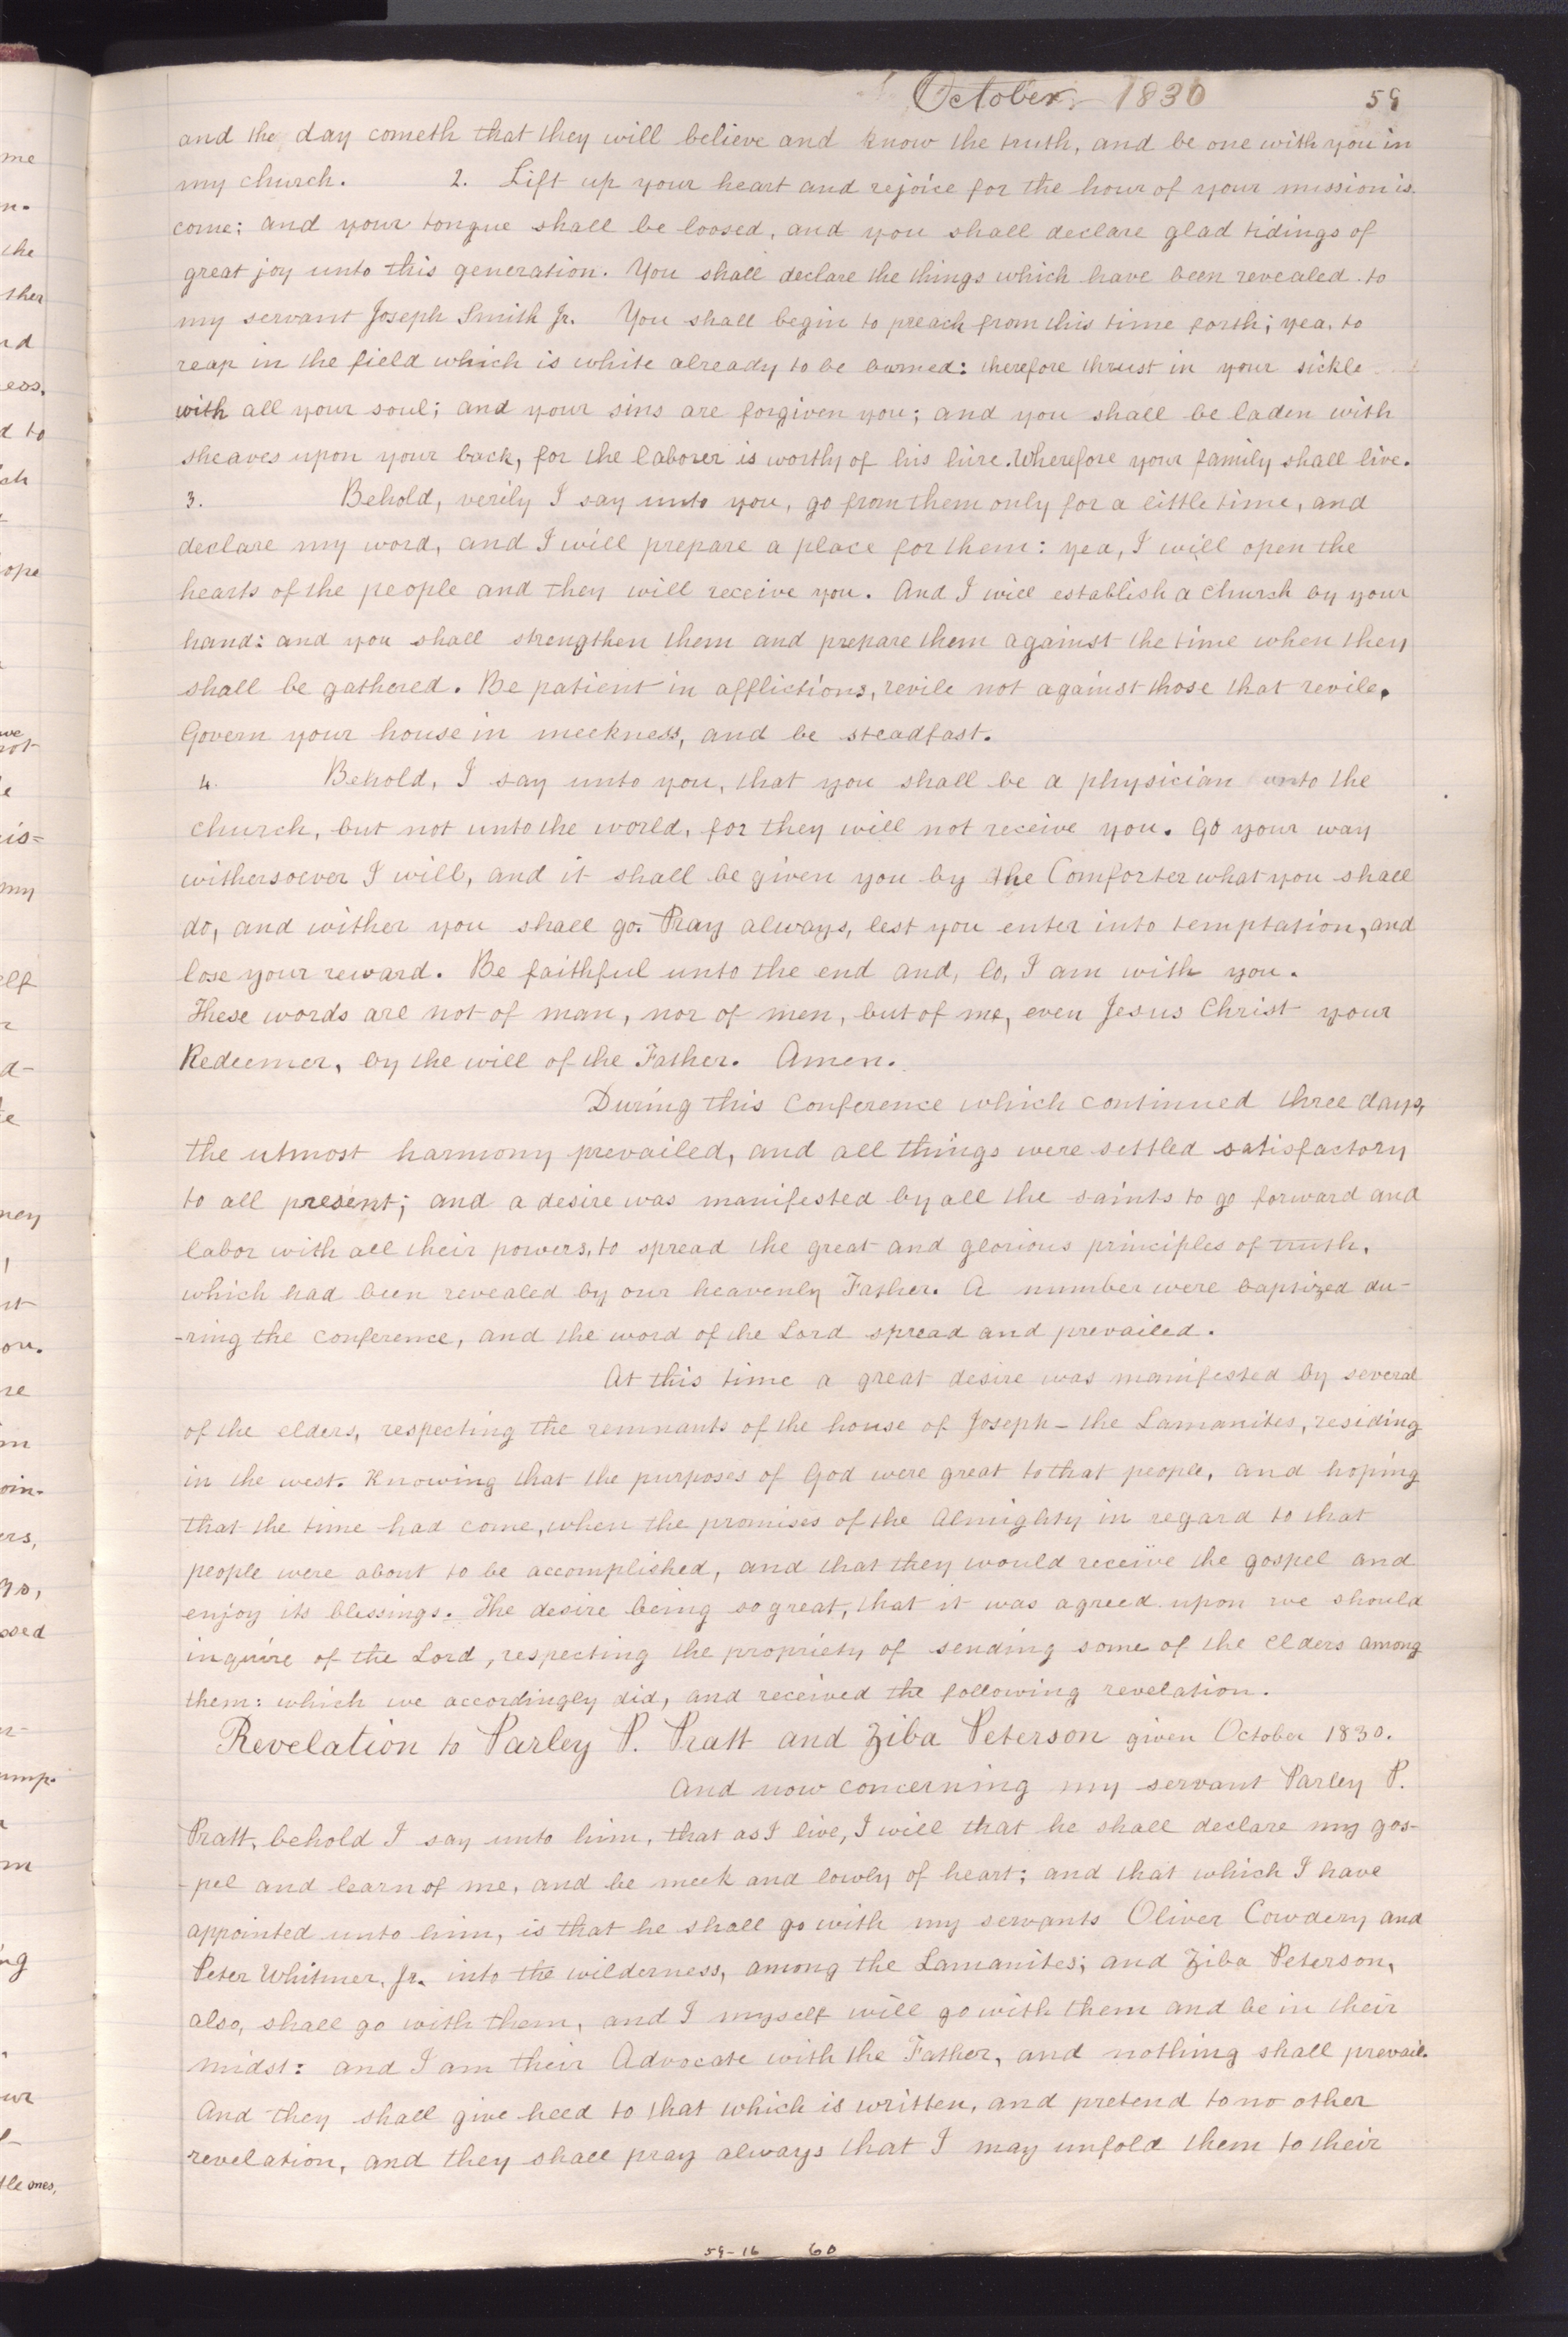 October 1830 59
and the day cometh that they will believe and know the truth, and be one with you in
my church. 2. Lift up your heart and rejoice for the hour of your mission is
come; and your tongue shall be loosed, and you shall declare glad tidings of
great joy unto this generation. You shall declare the things which have been revealed to
my servant Joseph Smith Jr. You shall begin to preach from this time forth; yea, to
reap in the field which is white already to be burned: therefore thrust in your sickle
with all your soul; and your sins are forgiven you; and you shall be laden with
sheaves upon your back, for the laborer is worthy of his hire. Wherefore your family shall live.
3. Behold, verily I say unto you, go from them only for a little time, and
declare my word, and I will prepare a place for them: yea, I will open the
hearts of the people and they will receive you. And I will establish a church by your
hand: and you shall strengthen them and prepare them against the time when they
shall be gathered. Be patient in afflictions, revile not against those that revile.
Govern your house in meekness, and be steadfast.
4. Behold, I say unto you, that you shall be a physician unto the
church, but not unto the world, for they will not receive you. Go your way
withersoever I will, and it shall be given you by the Comforter what you shall
do, and wither you shall go. Pray always, lest you enter into temptation, and
lose your reward. Be faithful unto the end and, lo, I am with you.
These words are not of man, nor of men, but of me, even Jesus Christ your
Redeemer, by the will of the Father. Amen.
During this Conference which continued three days,
the utmost harmony prevailed, and all things were settled satisfactory
to all present; and a desire was manifested by all the saints to go forward and
labor with all their powers, to spread the great and glorious principles of truth,
which had been revealed by our heavenly Father. A number were baptized du-
-ring the conference, and the word of the Lord spread and prevailed.
At this time a great desire was manifested by several
of the elders, respecting the remnants of the house of Joseph – the Lamanites, residing
in the west. Knowing that the purposes of God were great to that people, and hoping
that the time had come, when the promises of the Almighty in regard to that
people were about to be accomplished, and that they would receive the gospel and
enjoy its blessings. The desire being so great, that it was agreed upon we should
inquire of the Lord, respecting the propriety of sending some of the Elders among
them: which we accordingly did, and received the following revelation.
Revelation to Parley P. Pratt and Ziba Peterson given October 1830.
And now concerning my servant Parley P.
Pratt, behold I say unto him, that as I live, I will that he shall declare my gos-
-pel and learn of me, and be meek and lowly of heart; and that which I have
appointed unto him, is that he shall go with my servants Oliver Cowdery and
Peter Whitmer, Jr. into the wilderness, among the Lamanites; and Ziba Peterson,
also, shall go with them, and I myself will go with them and be in their
midst: and I am their Advocate with the Father, and nothing shall prevail.
And they shall give heed to that which is written, and pretend to no other
revelation, and they shall pray always that I may unfold them to their
59-16 60